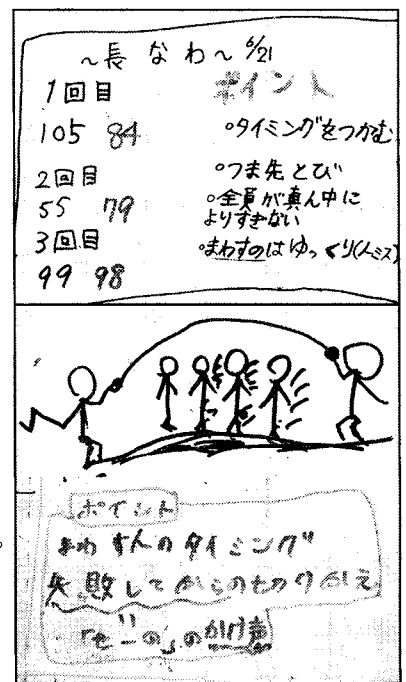 ～長なわ～ 6/21
1回目
105 84
2回目
55 79
3回目
99 98
ポイント
○タイミングをつかむ
○つま先とび
○全員が真ん中に
よりすぎない
○まわすのはゆっくり(人ミス)
ポイント
まわす人のタイミング
失敗してからの切りかえ
「せーの」のかけ声